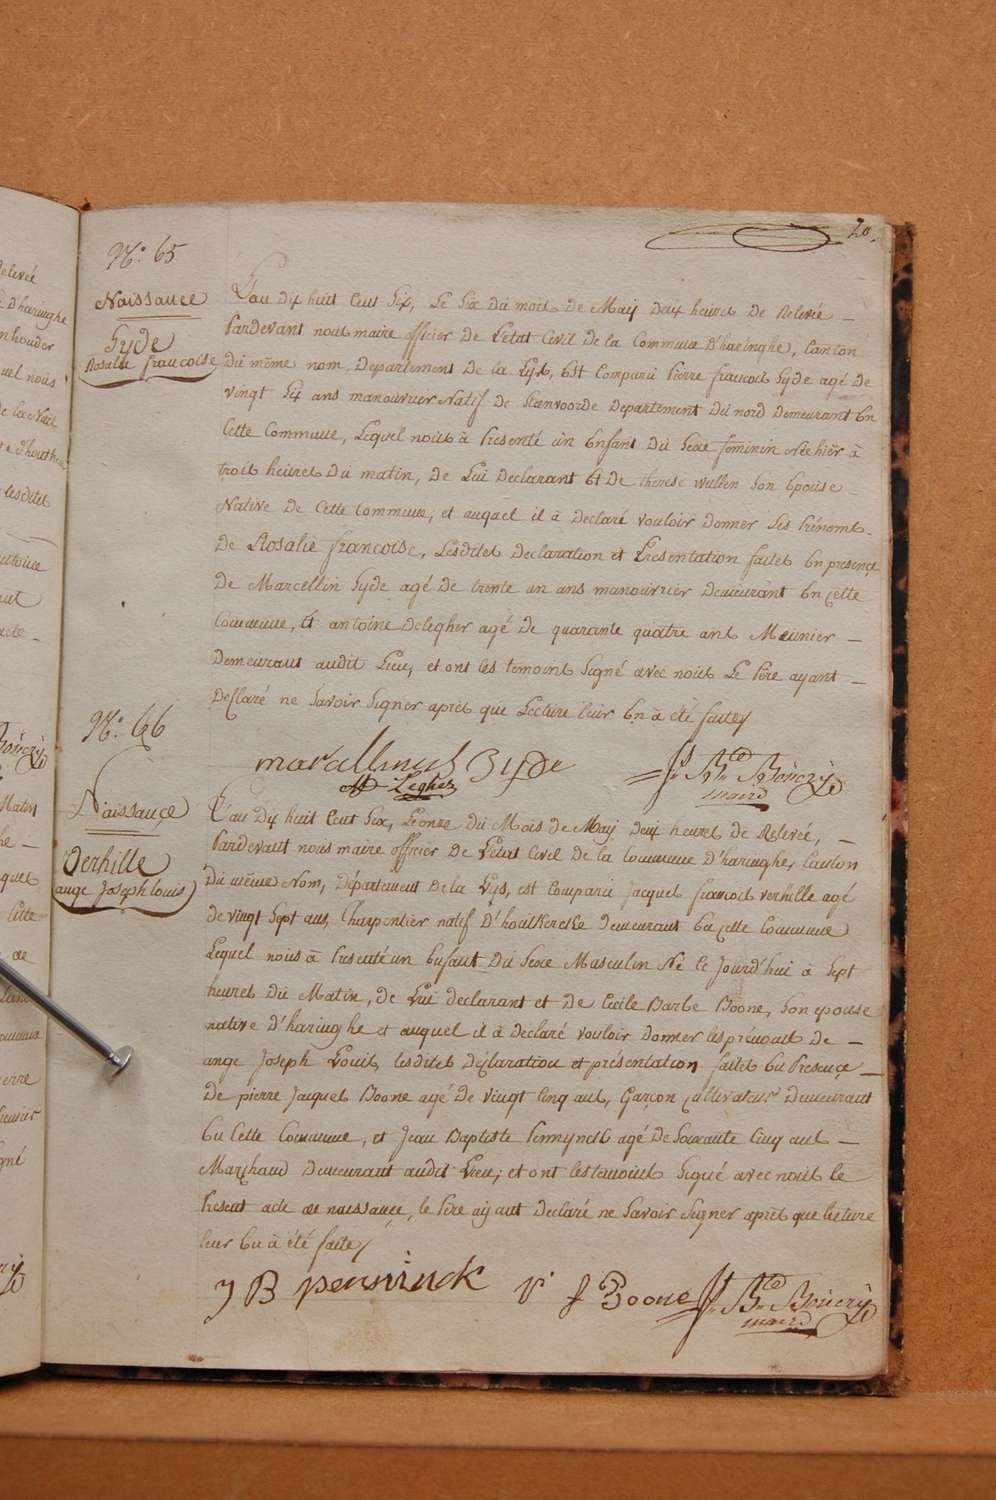 20.
N.º 65
Naissance
Gyde
Rosalie francoise
L'an dix huit Cent Six, Le Six du mois de Maij deux heures de Relevée
Pardevant nous maire officier de L'état Civil de la Commune D'haringhe, Canton
Du même nom, Departement De la Lys, Est Comparu Pierre francois Gyde agé de
vingt Six ans manouvrier Natif de Steenvoorde Departement Du nord Demeurant En
Cette Commune, Lequel nous à Presenté un Enfant Du Sexe feminin Née hier à
trois heures Du matin, De Lui Declarant Et De therese wullen Son Epouse
Native De Cette Commune, et auquel il à Declaré vouloir Donner Les Prénoms
De Rosalie francoise, Lesdites Declaration et Presentation faites En presence
De Marcellin Gyde agé de trente un ans manouvrier Demeurant En Cette
Commune, Et antoine Delegher agé De quarante quatre ans Meunier
Demeurant audit Lieu, et ont Les temoins Signé avec nous Le Pére ayant
Declaré ne Savoir Signer aprés que Lecture leur En à été faite
marallinus Gyde
AD Leghez
N.º 66
Naissance
Verhille
ange Joseph louis
L'an Dix huit Cent Six, Le onze du Mois de Maij deux heures de Relevée,
Pardevant nous maire officier De L'etat Civil de la Commune D'haringhe, Canton
Du même Nom, Département De la Lys, est Comparu Jacques francois verhille agé
de vingt Sept ans, Charpentier natif D'houtkercke Demeurant En Cette Commune
Lequel nous à Presenté un Enfant Du Sexe Masculin Né Ce Jourd'hui à Sept
heures Du Matin, de Lui declarant et De Cecile Barbe Boone, Son epouse
native D'haringhe et auquel il à Declaré vouloir Donner les prénoms De
ange Joseph Louis, lesdites Déclaration et présentation faites En Presence
De pierre Jacques Boone agé De vingt Cinq ans, Garçon Cultivateur Demeurant
En Cette Commune, et Jean Baptiste agé De Soixante Cinq ans
Marchand Demeurant audit Lieu; et ont les temoins Signé avec nous le
Present acte de naissance, le Pére aijant Declaré ne Savoir Signer aprés que lecture
leur En à été faite
J B penninck
P J Boone